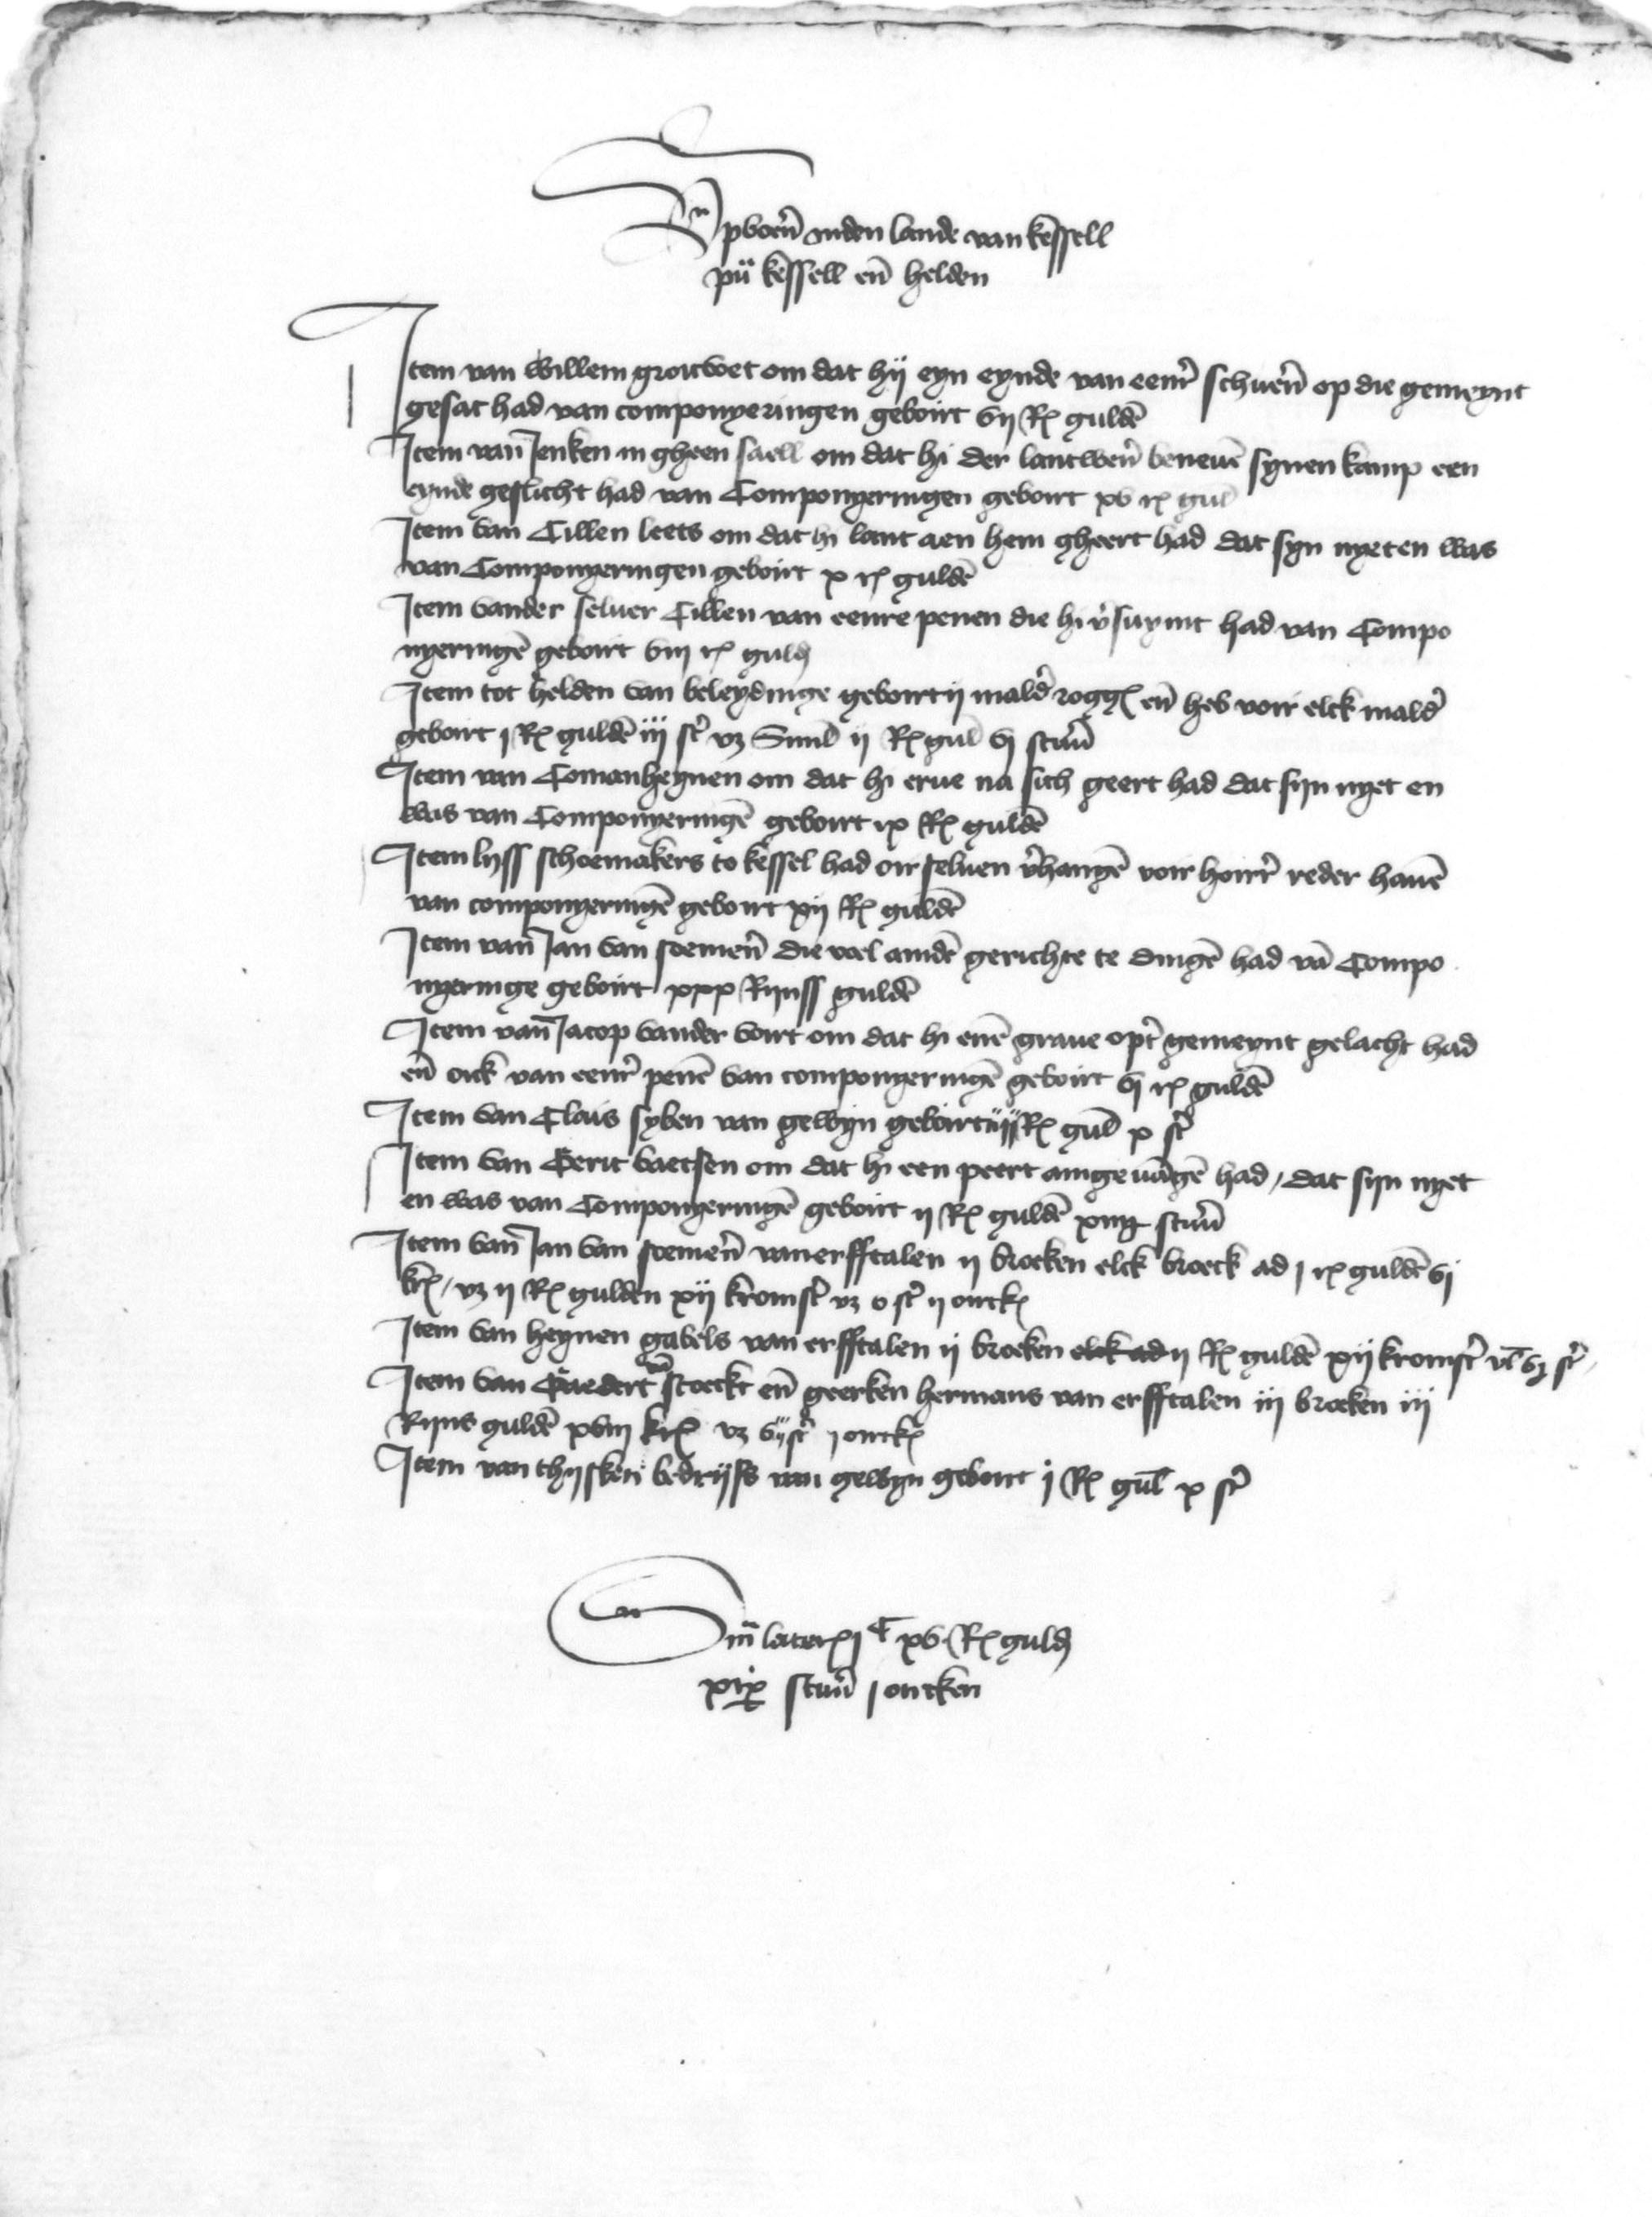 Opboeren inden lande van kessell
pur kessell en helden
Item van Willem groitvoet om dat hij eyn eynde van eenr schuern op die gemeynt
gesat had van componyeringen geboirt vij R gulde
Item van Jenken in gheen saell om dat hi der lantwern beneue synen kamp een
eynde geslicht had van Componyeringen geboirt xv r gul
Item van Tillen leets om dat hi lant aen hem gheert had dat syn nyet en was
van Componyeringen geboirt x r gulde
Item vander seluer Tillen van eenre penen die hi vsuymt had van Compo
nyeringe geboirt viij r guld
Item tot helden van beleydinge geboirt ij mald rogg en heb voir elck mald
geboirt j R gulde iij st vz Siml ij R gul vj stuu
Item van Comanheynen om dat hi erue na sich geert had dat sijn nyet en
was van Componyeringe geboirt ix R gulde
Item lijss schoemakers to kessel had oir seluen vhange voir hoirr reder haue
van componyeringe geboirt xij R gulde
Item van Jan van soemern die voel ainde gerichte te dinge had va Compo
nyeringe geboirt xxx Rijnss gulde
Item van Jacop vander voirt om dat hi ene graue opt gemeynt gelacht had
en oick van eenr pene van componyeringe geboirt vj r gulde
Item van Clais syben van gewyn geboirt iiij R gul x st
Item van Gerit vaetsen om dat hi een peert aingeuage had / dat sijn nyet
en was van Componyeringe geboirt ij R gulde xiiij stuu
Item van Jan van soemern van erfftalen ij broeken elck broeck ad j r gulde vj
kr / vz ij R gulden xij kromst vz v st ij ortk
Item van heynen gabels van erfftalen ij broeken elck ad ij R gulde xij kromst vl vj st
Item van Gaedert va stoeckt en geerken hermans van erfftalen iij broeken iij
Rijns gulde xviij kr vz vij st j ortk
Item van thijsken bedrijfs van gewyn geboirt j R gul x st
Sm lateris j C xv R guld
xix stuu j ortken